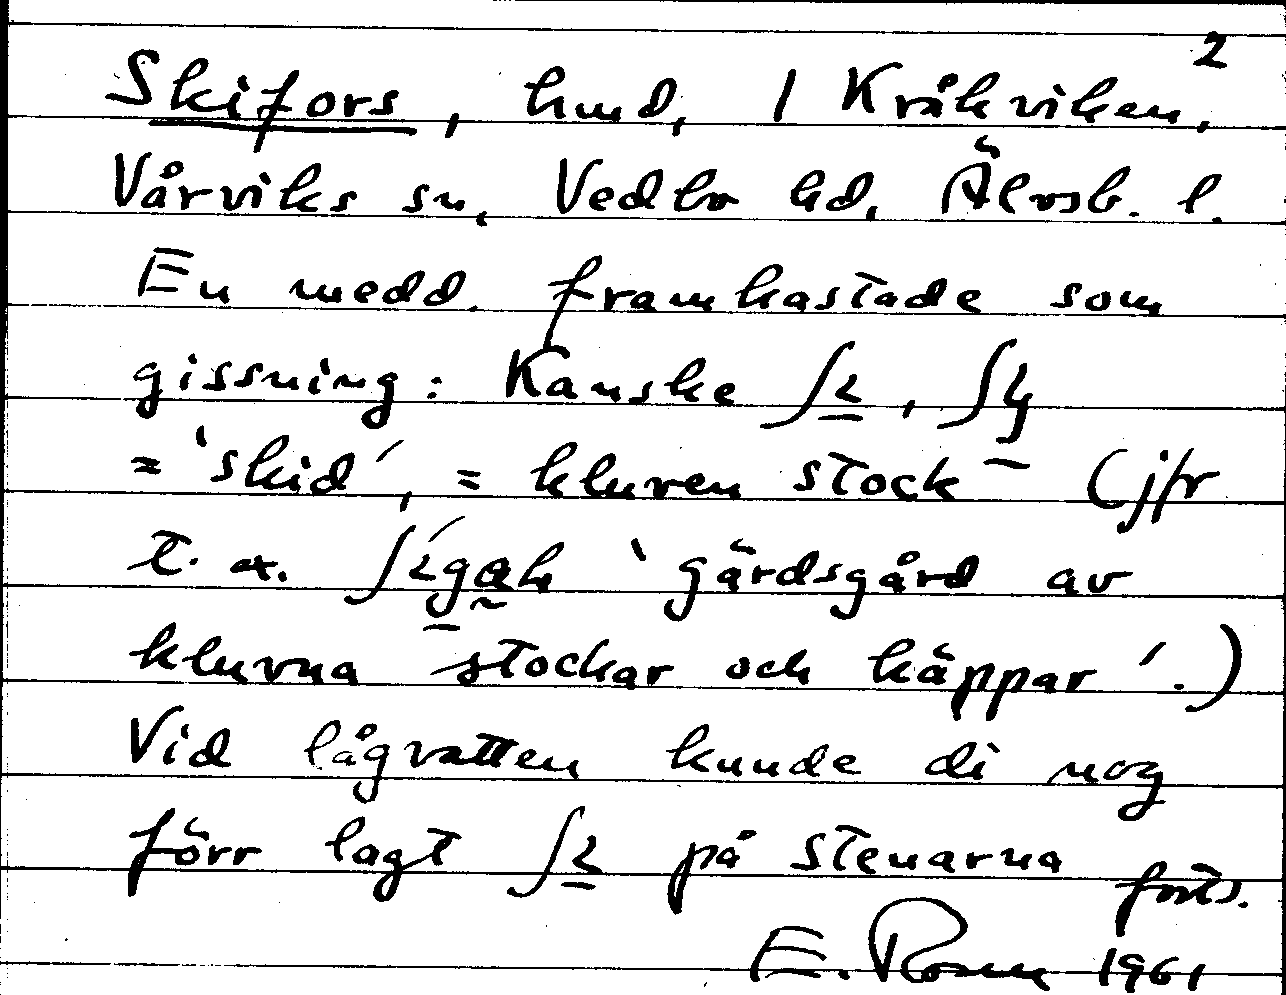 2
Skifors, hmd, 1 Kråkviken,
Vårviks sn, Vedbo hd, Älvsb. l.
En medd. framkastade som
gissning: Kanske
= 'skid', = kluven stock – (jfr
t. ex. 'gärdsgård av
kluvna stockar och käppar'.)
Vid lågvatten kunde di nog
förr lagt på stenarna forts.
E. Rosen 1961